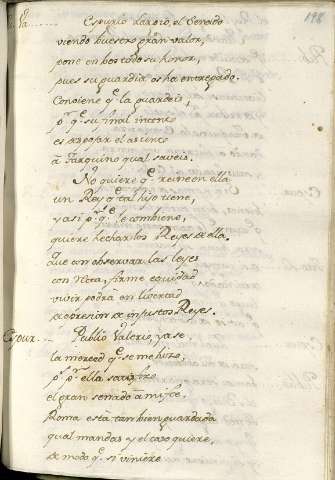 198
Va..... Espurio Larcio, el Senado
viendo buestro gran valor,
pone en bos todo su honor,
pues su guardia os ha entregado.
Conbiene q.e la guardeis,
p.r q.e su mal intento
es arrojar el asiento
a Tarquino qual sabeis.
No quiere q.e reine en ella
un Rey q.e tal hijo tiene,
y asi p.r q.e le combiene,
quiere hechar los Reyes de ella.
Que con observar las leyes
con neta, firme equidad
vivir podrá en libertad
de opresion de injustos Reyes.
Espur.... Publio Valerio, ya se
la merced q.e se me hizo,
p.r q.e ella satisfizo
el gran senado á mi fee.
Roma está tan bien guardada
qual mandas y el caso quiere,
de modo q.e si viniere